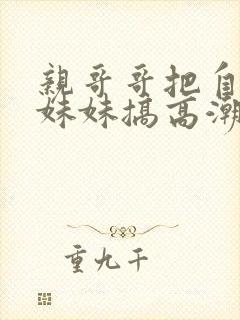 親哥哥把自
妹妹搞高潮
重九千